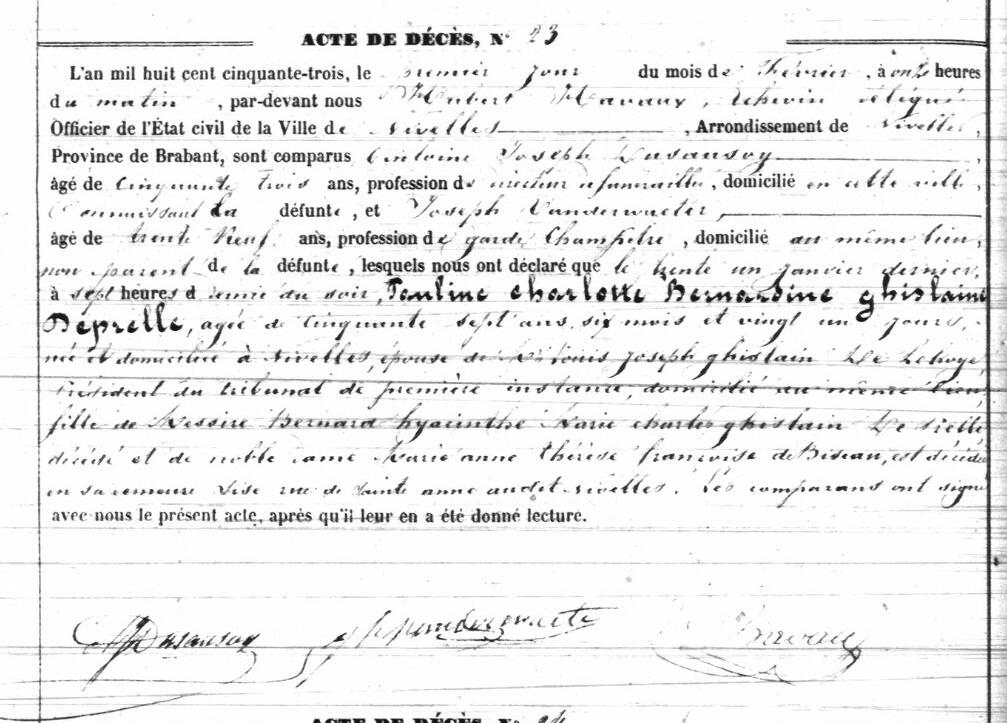 ACTE DE DÉCÈS, N° 23
L'an mil huit cent cinquante-trois, le premier jour du mois de Février, à onze heures
du matin, par-devant nous Hubert Havaux, Echevin délégué
Officier de l'État civil de la Ville de Nivelles, Arrondissement de Nivelles,
Province de Brabant, sont comparus Antoine Joseph Dusausoy,
âgé de Cinquante trois ans, profession de directeur de funérailles, domicilié en cette ville,
Connaissant la défunte, et Joseph Vanderwaeter,
âgé de trente Neuf ans, profession de garde Champêtre, domicilié au même lieu,
non parent de la défunte, lesquels nous ont déclaré que le trente un janvier dernier,
à sept heures demie du soir, Pauline Charlotte Bernardine ghislaine
Deprelle, agée de Cinquante sept ans, six mois et vingt un jours,
née et domiciliée à Nivelles, épouse de Louis Joseph ghislain
Président du tribunal de première instance, domicilié au même lieu,
fille de Messire Bernard hyacinthe Marie charles ghislain De Prelle
décédé et de noble dame Marie anne Thérèse françoise de Biseau, est décédée
en sa demeure sise rue de Sainte anne audit Nivelles. Les comparans ont signé
avec nous le présent acte, après qu'il leur en a été donné lecture.
Dusausoy Vanderwaeter Havaux
ACTE DE DÉCÈS, N° 24